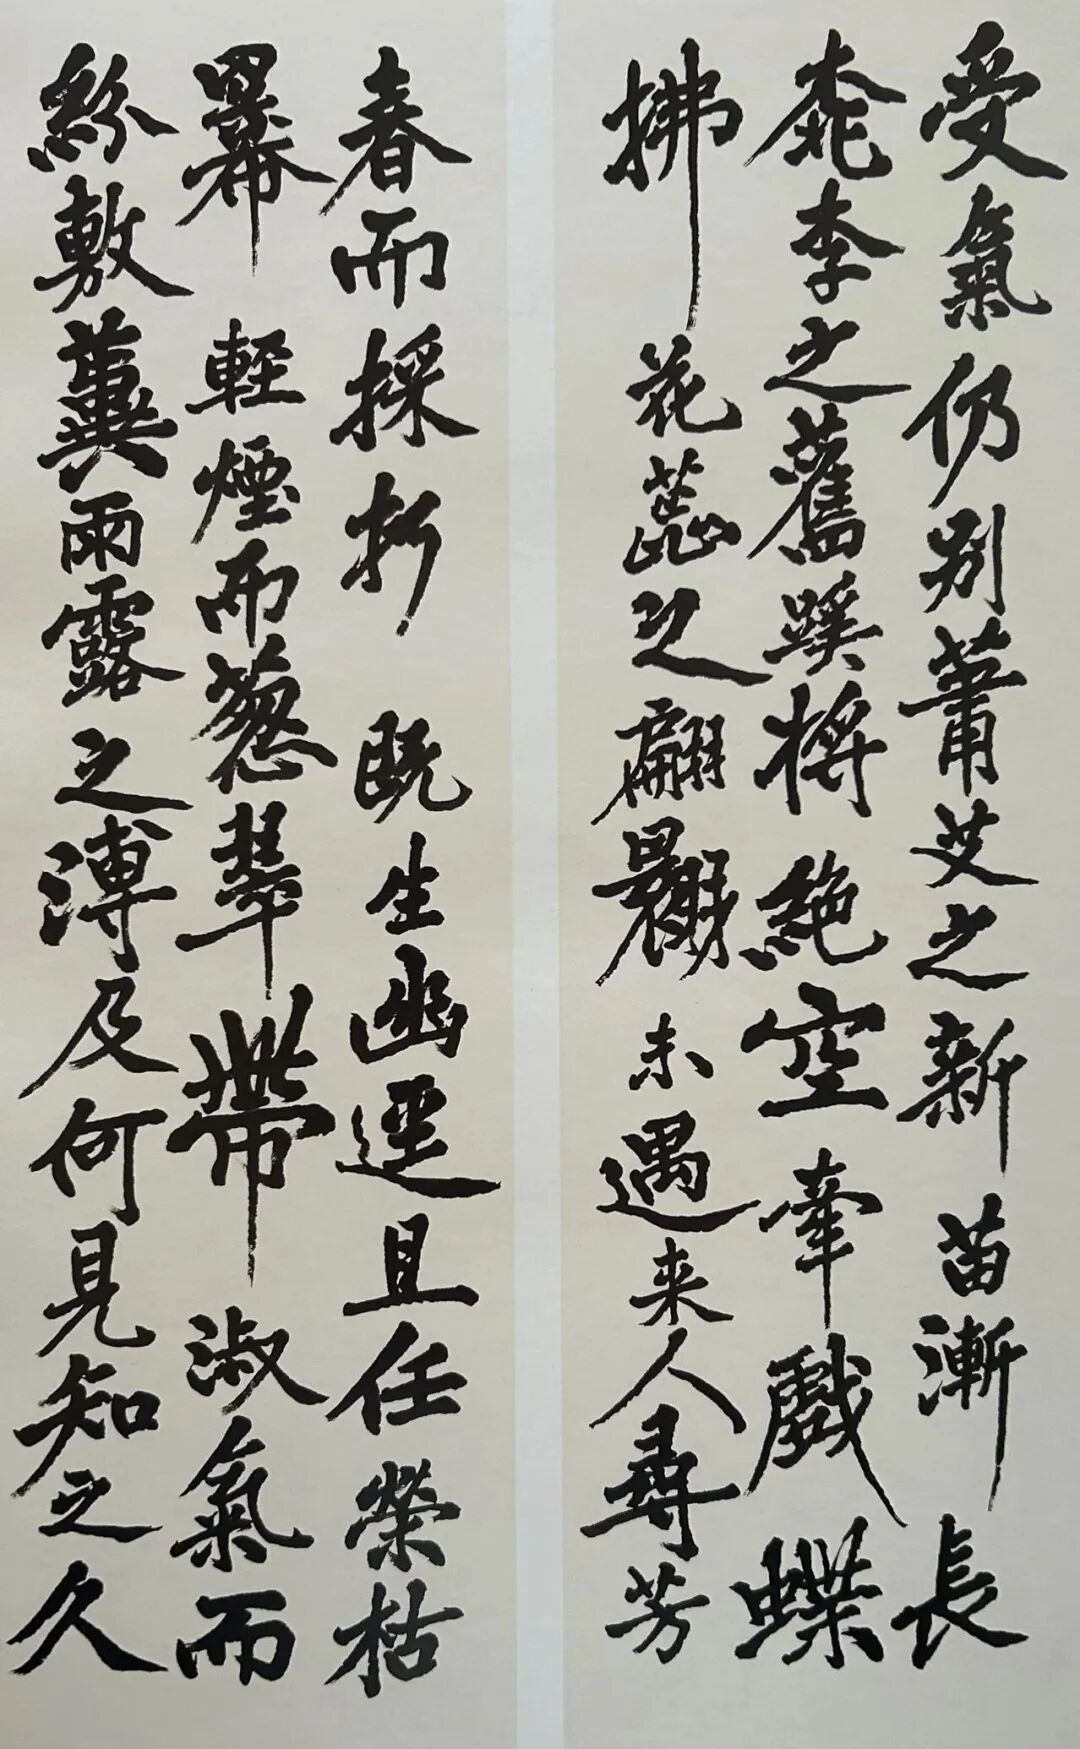 受氣仍別蕭艾之新苗漸長
桃李之舊蹊將絕空牽戲蝶
拂花蕊之翩翾未遇來人尋芳
春而採折既生幽逕且任榮枯
冪輕煙而葱翠帶淑氣而
紛敷冀雨露之溥及何見知之久